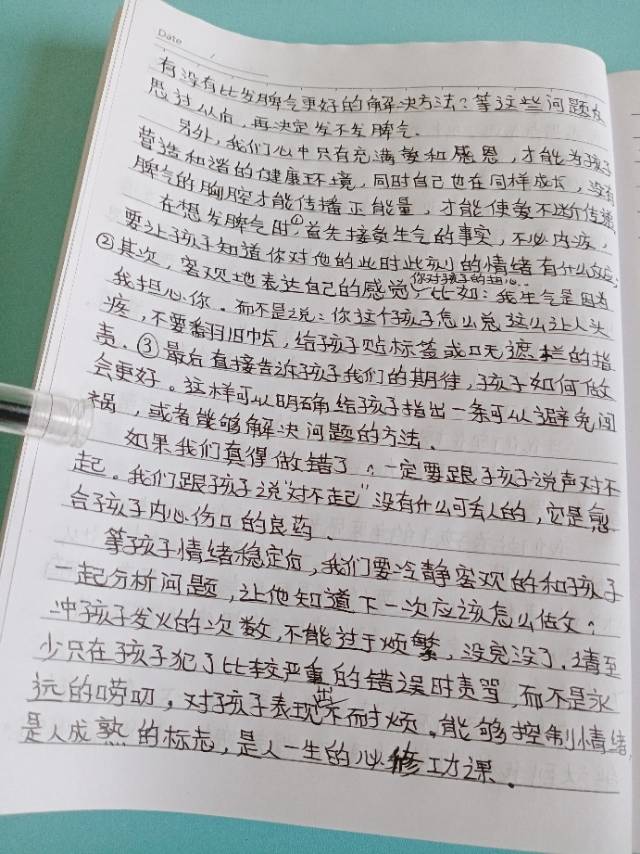 Date
有没有比发脾气更好的解决方法？等这些问题在
思讨以后，再决定发不发脾气。
另外，我们心中只有充满爱和感恩，才能为孩子
营造和谐的健康环境，同时自己也在同样成长，没有
脾气的胸腔才能传播正能量，才能使爱不断传递
在想发脾气时①首先接受生气的事实，不必内疚，
要让孩子知道你对他的此时此刻的情绪有什么反应
②其次，客观地表达自己的感觉，你对孩子的担心..比如：我生气是因为
我担心你。而不是说：你这个孩子怎么总这么让人头
疼，不要翻旧帐，给孩子贴标签或口无遮拦的指
责。③最后直接告诉孩子我们的期待，孩子如何做
会更好。这样可以明确给孩子指出一条可以避免闯
祸，或者能够解决问题的方法。
如果我们真得做错了，一定要跟孩子说声对不
起。我们跟孩子说“对不起”没有什么可丢人的，它是愈
合孩子内心伤口的良药。
等孩子情绪稳定后，我们要冷静客观的和孩子
一起分析问题，让他知道下一次应该怎么做？
冲孩子发火的次数，不能过于频繁，没完没了。请至
少只在孩子犯了比较严重的错误时责骂，而不是永
远的唠叨，对孩子表现出不耐烦。能够控制情绪
是人成熟的标志，是人一生的必修功课。